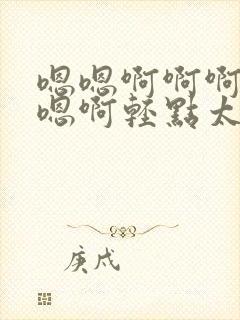 嗯嗯啊啊啊
嗯啊轻點太
庚戍